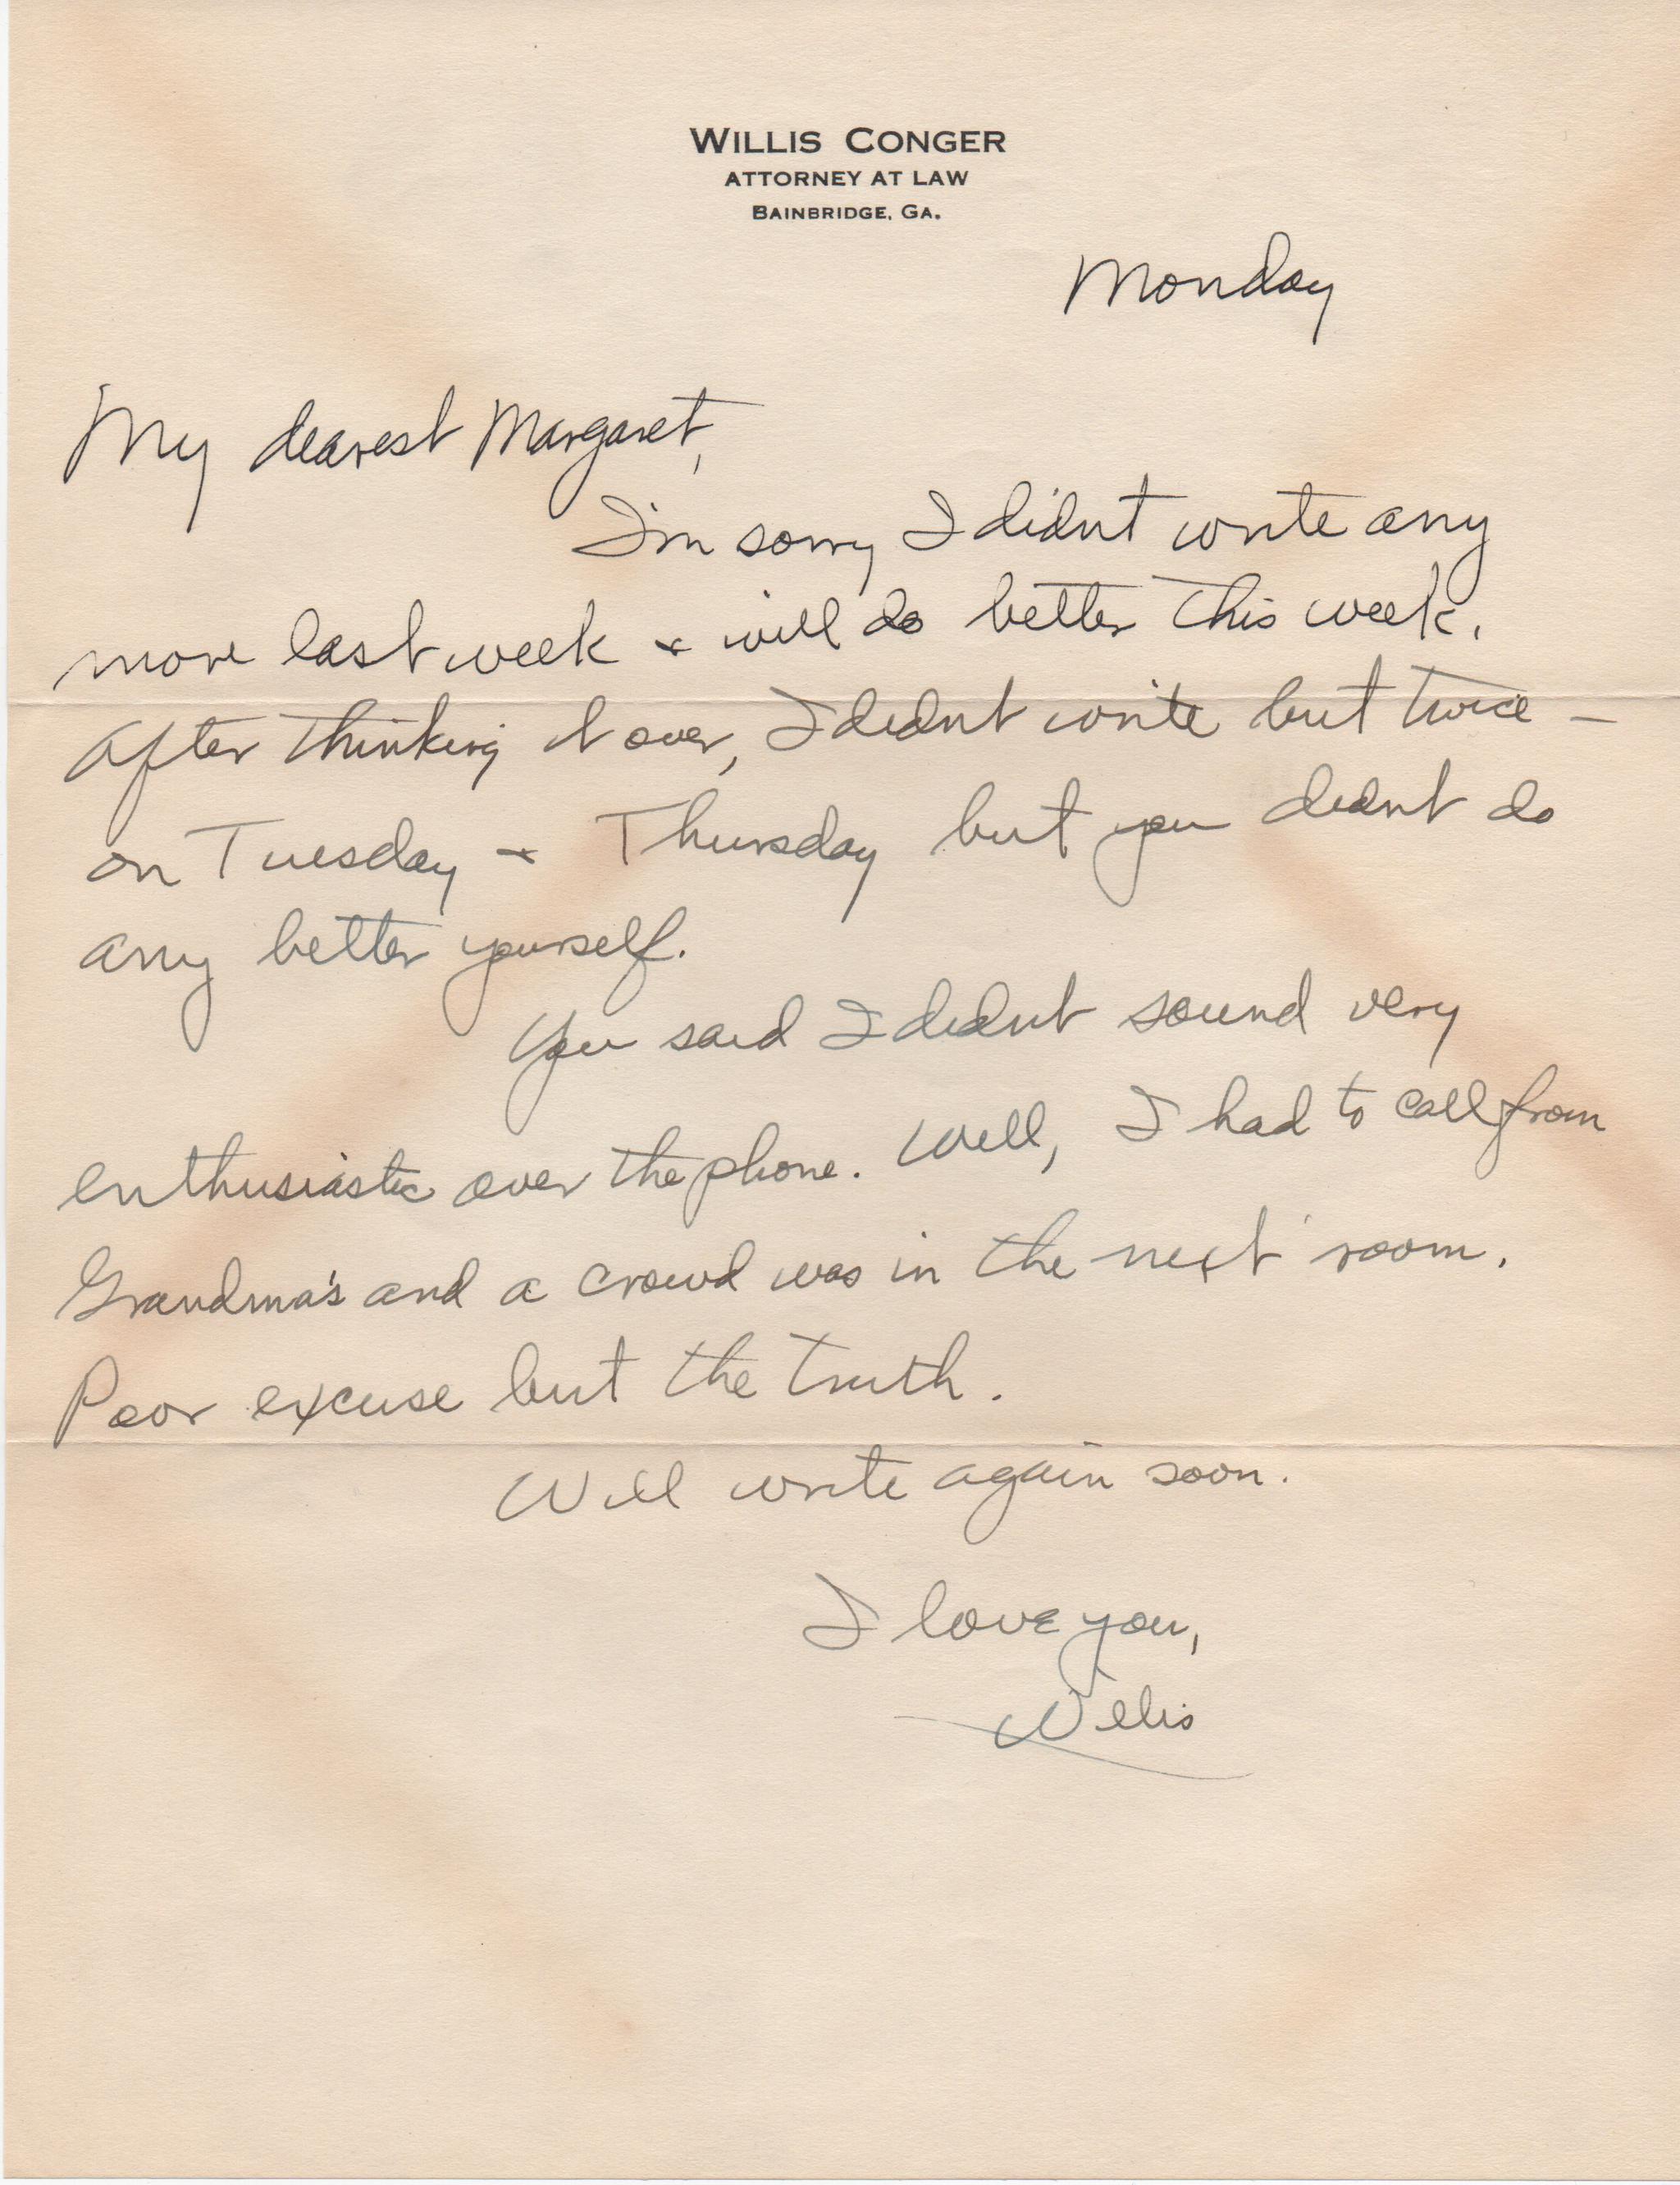 WILLIS CONGER
ATTORNEY AT LAW
BAINBRIDGE, GA.
Monday
My dearest Margaret,
I'm sorry I didn't write any
more last week & will do better this week.
After thinking it over, I didnt write but twice –
on Tuesday & Thursday but you didnt do
any better yourself.
You said I didnt sound very
enthusiastic over the phone. Well, I had to call from
Grandma's and a crowd was in the next room.
Poor excuse but the truth.
Will write again soon.
I love you,
Willis